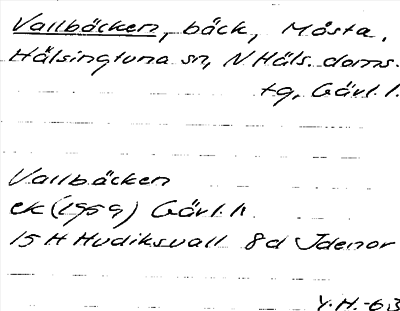 Vallbäcken, bäck, Mösta,
Hälsingtuna sn, N Häls. doms.
tg, Gävl. l.
Vallbäcken
ek (1959) Gävl. l.
15 H Hudiksvall 8d Idenor
Y.H.-63